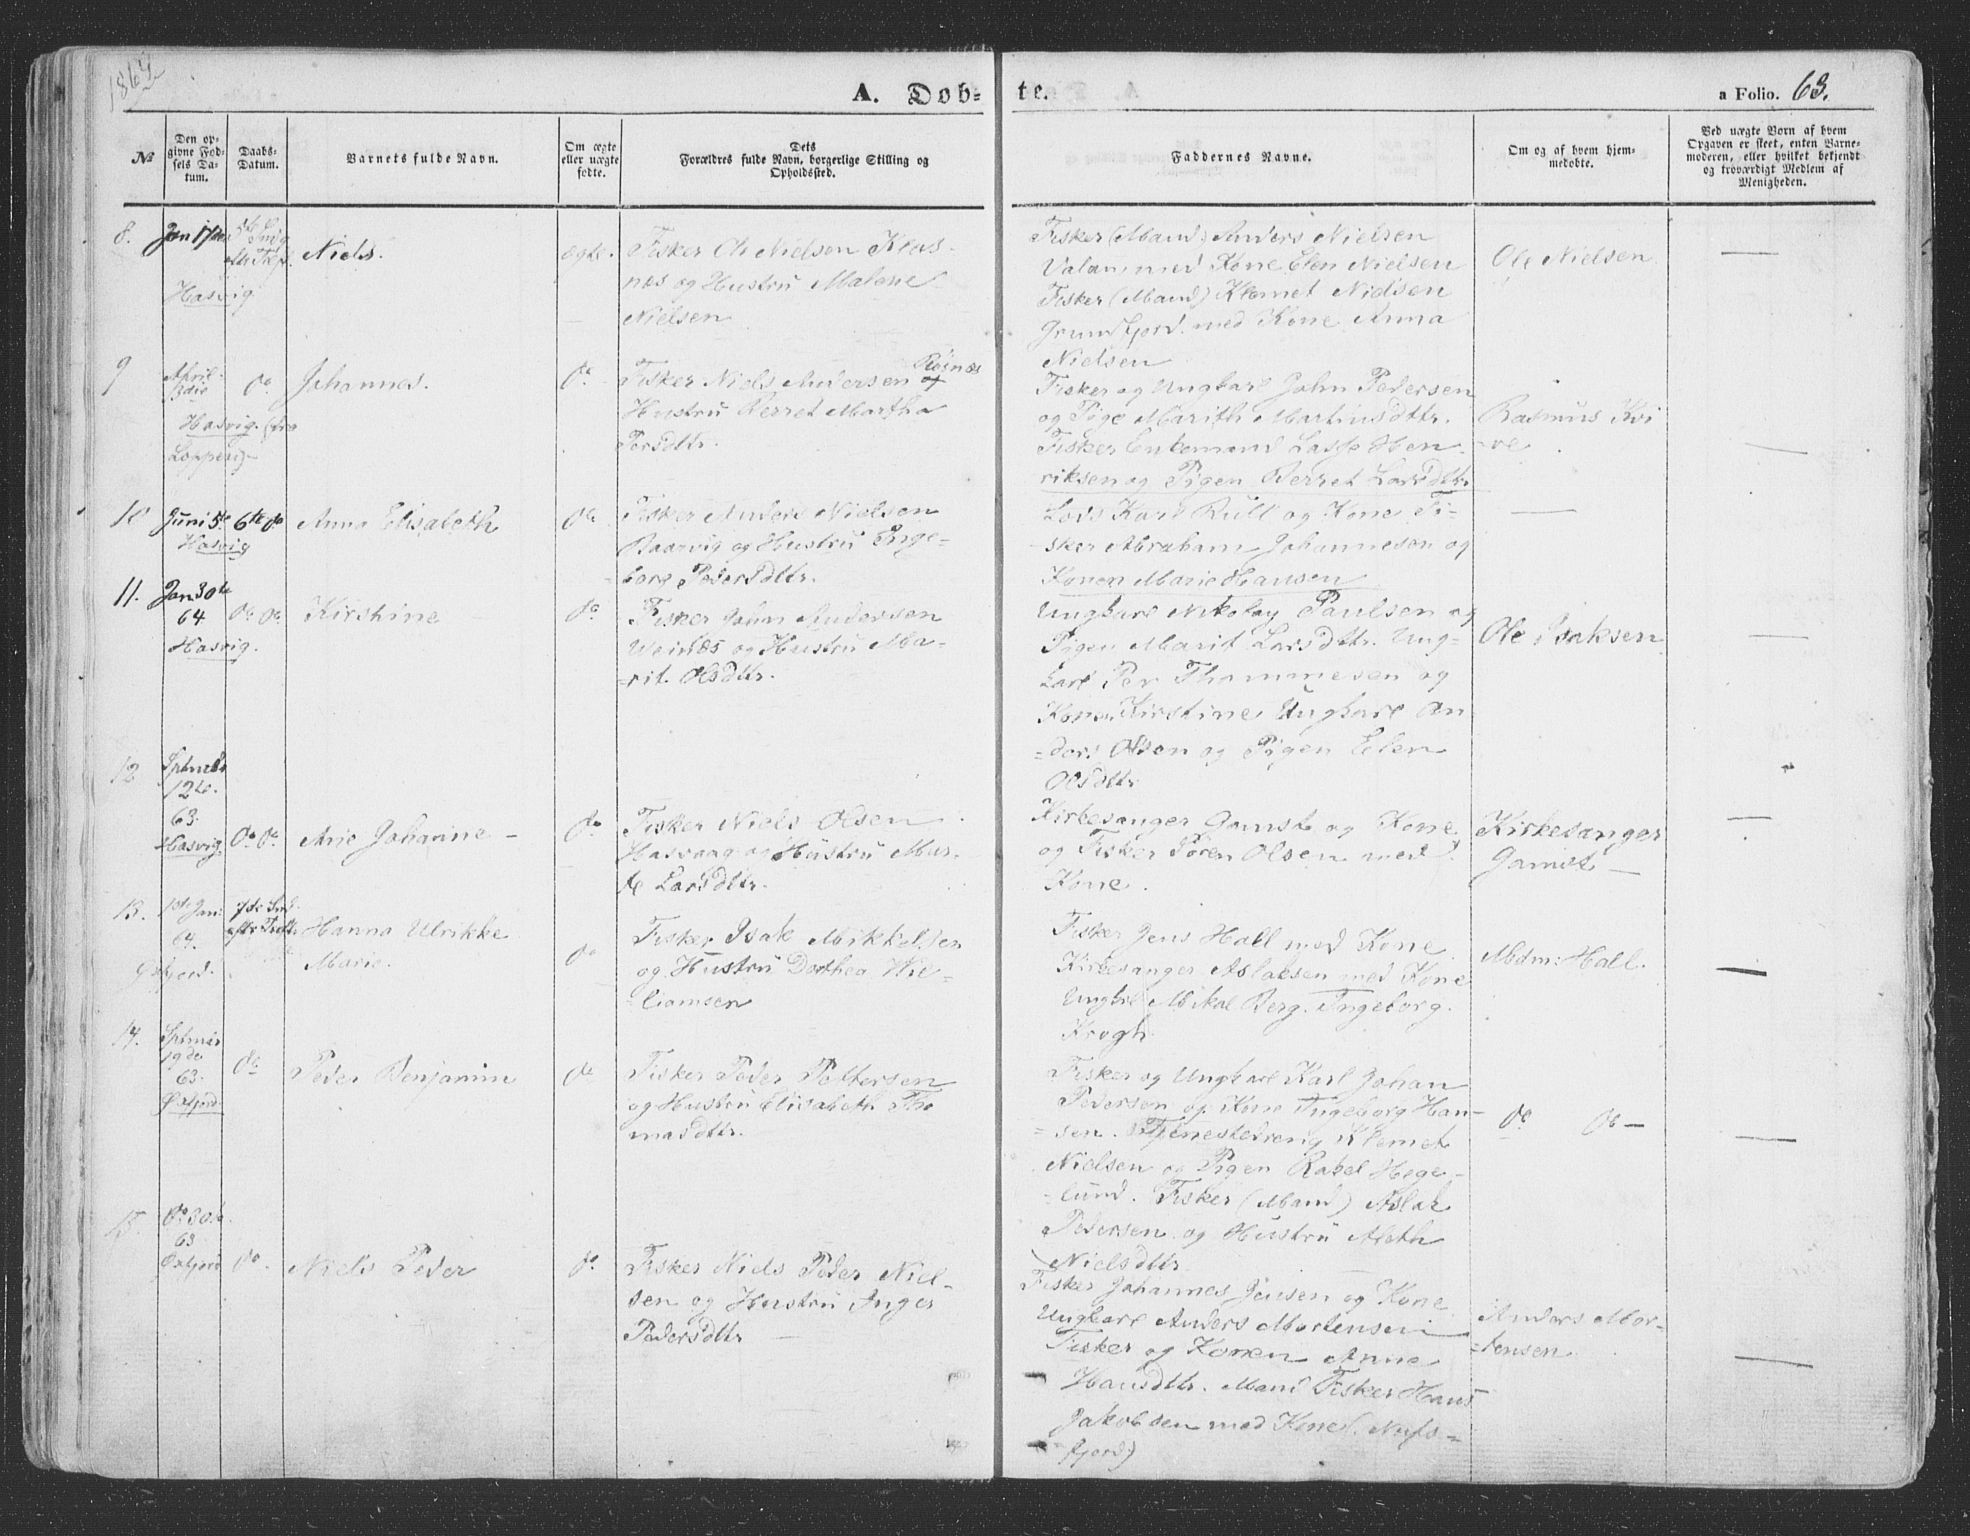 1864
A. Døb-
te.
a Folio. 63.
№
Den op-
givne Fød-
sels Da-
tum.
Daabs-
Datum.
Barnets fulde Navn.
Om ægte
eller uægte
fødte.
Dets
Forældres fulde Navn, borgerlige Stilling og
Opholdssted.
Faddernes Navne.
Om og af hvem hjem-
medøbte.
Ved uægte Børn af hvem
Opgaven er skeet, enten Barne-
moderen, eller hvilket bekjendt
og troværdigt Medlem af
Menigheden.
8.
Jan 17de
Hasvig
Niels.
ægte.
Fisker Ole Nielsen Klas
nes og Hustru Malene
Nielsen
Fisker (Mand) Anders Nielsen
Valan, med Kone Elen Nielsen
Fisker (Mand) Klemet Nielsen
Grundfjord. med Kone Anna
Nielsen
Ole Nielsen
9
April
Hasvig. (fra
Loppen)
do
Johannes.
do
Fisker Niels Andersen Røgnæs
og
Hustru Berret Martha
Persdttr.
Fisker og Ungkarl John Pedersen
og Pige Marith Martinsdttr.
Fisker Enkemand Lasse Hen
riksen og Pigen Berret Larsdttr.
Rasmus Kvi
ve
10
Juni 5te
Hasvig
6te do
Anna Elisabeth
do
Fisker Anders Nielsen
og Hustru Inge-
bore Pedersdttr.
Lods Karl Bull og Kone Fi-
sker Abraham Johannesen og
Konen Marie Hansen
11.
Jan 30te
64
Hasvig.
do do
Kirshine
do
Fisker John Andersen
og Hustru Ma-
-rit. Olsdttr.
Ungkarl Nikolay Paulsen og
Pigen Marit Larsdttr. Ung-
karl Per Thommesen og
Konen Kirstine Ungkarl An
=ders Olsen og Pigen Elen
Olsdttr
Ole Isaksen
12
Sptmbr
12te.
63.
Hasvig
do do
Ane Johanne -
do
Fisker Niels Olsen
Hasvaag og Hustru Mar-
te Larsdttr.
Kirkesanger Gamst og Kone
og Fisker Søren Olsen med
Kone.
Kirkesanger
Gamst -
13.
1ste Jan:
64.
Øxfjord.
7de Snd.
eftr Trett.
Hanna Ulrikke
Marie.
do
Fisker Isak Mikkelsen
og Hustru Dorthea Wil-
-liamsen
Fisker Jens Hall med Kone
Kirkesanger Aslaksen med Kone
Ungkrl Mikal Berg. Ingeborg.
Krogh.
Mdm: Hall.
14.
Sptmbr
19de
63.
Øxfjord
do
Peder Benjamin
do
Fisker Peder Pettersen
og Hustru Elisabeth Tho
masdttr.
Fisker og Ungkarl Karl Johan
Pedersen og Kone Ingeborg Han-
=sen. Tjenestedreng Klemet
Nielsen og Pigen Rakel Hege-
-lund. Fisker (Mand) Aslak
Pedersen og Hustru Aleth
Nielsdttr
do do -
15.
do 30te
63
Øxfjord
do.
Niels Peder
do.
Fisker Niels Peder Niel-
sen og Hustru Inger
Pedersdttr
Fisker Johannes Jensen og Kone
Ungkarl Anders Mortensen
Fisker og Konen Anne
Hansdttr. Mand Fisker Hans
Jakobsen med Kone (. Nufs=
fjord)
Anders Mor-
=tensen.